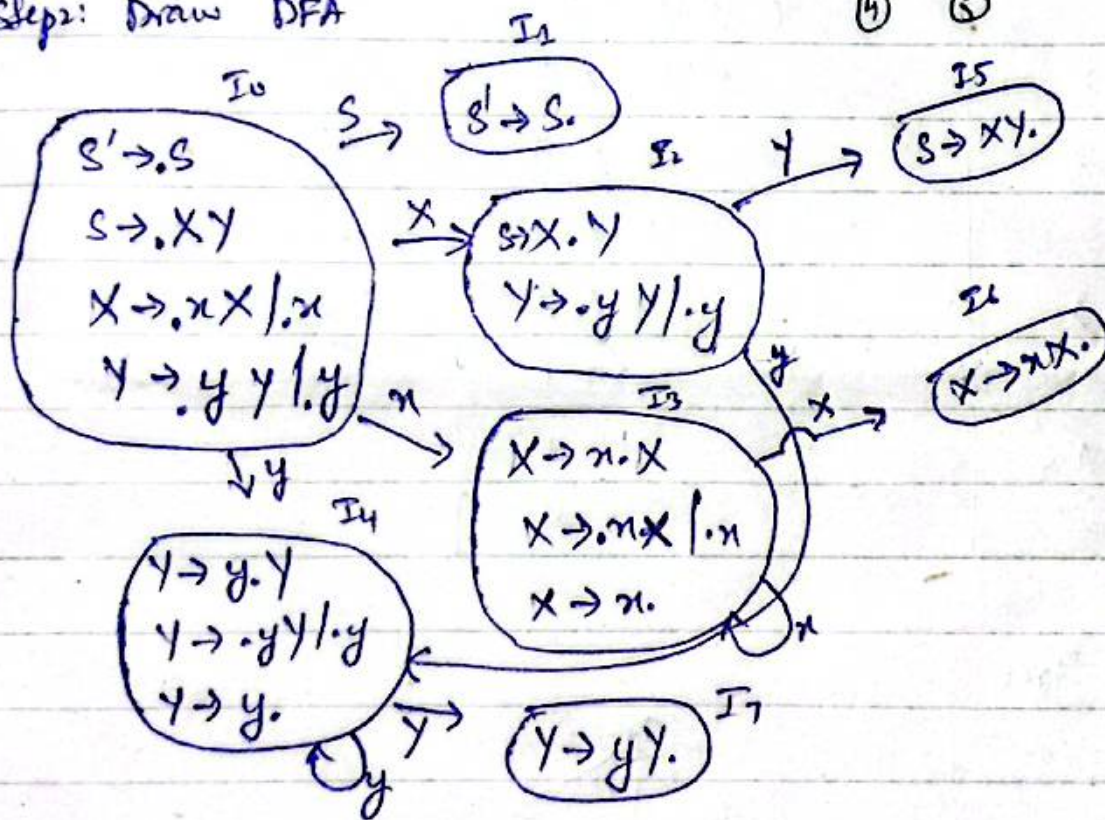 Step2: Draw DFA
④ ⑤
I0
S'→.S
S→.XY
X→.xX/.x
Y→.yY/.y
S
I1
S'→S.
X
I2
S→X.Y
Y→.yY/.y
Y
I5
S→XY.
x
I3
X→x.X
X→.xX/.x
X→x.
y
X
I6
X→xX.
x
y
I4
Y→y.Y
Y→.yY/.y
Y→y.
y
Y
I7
Y→yY.